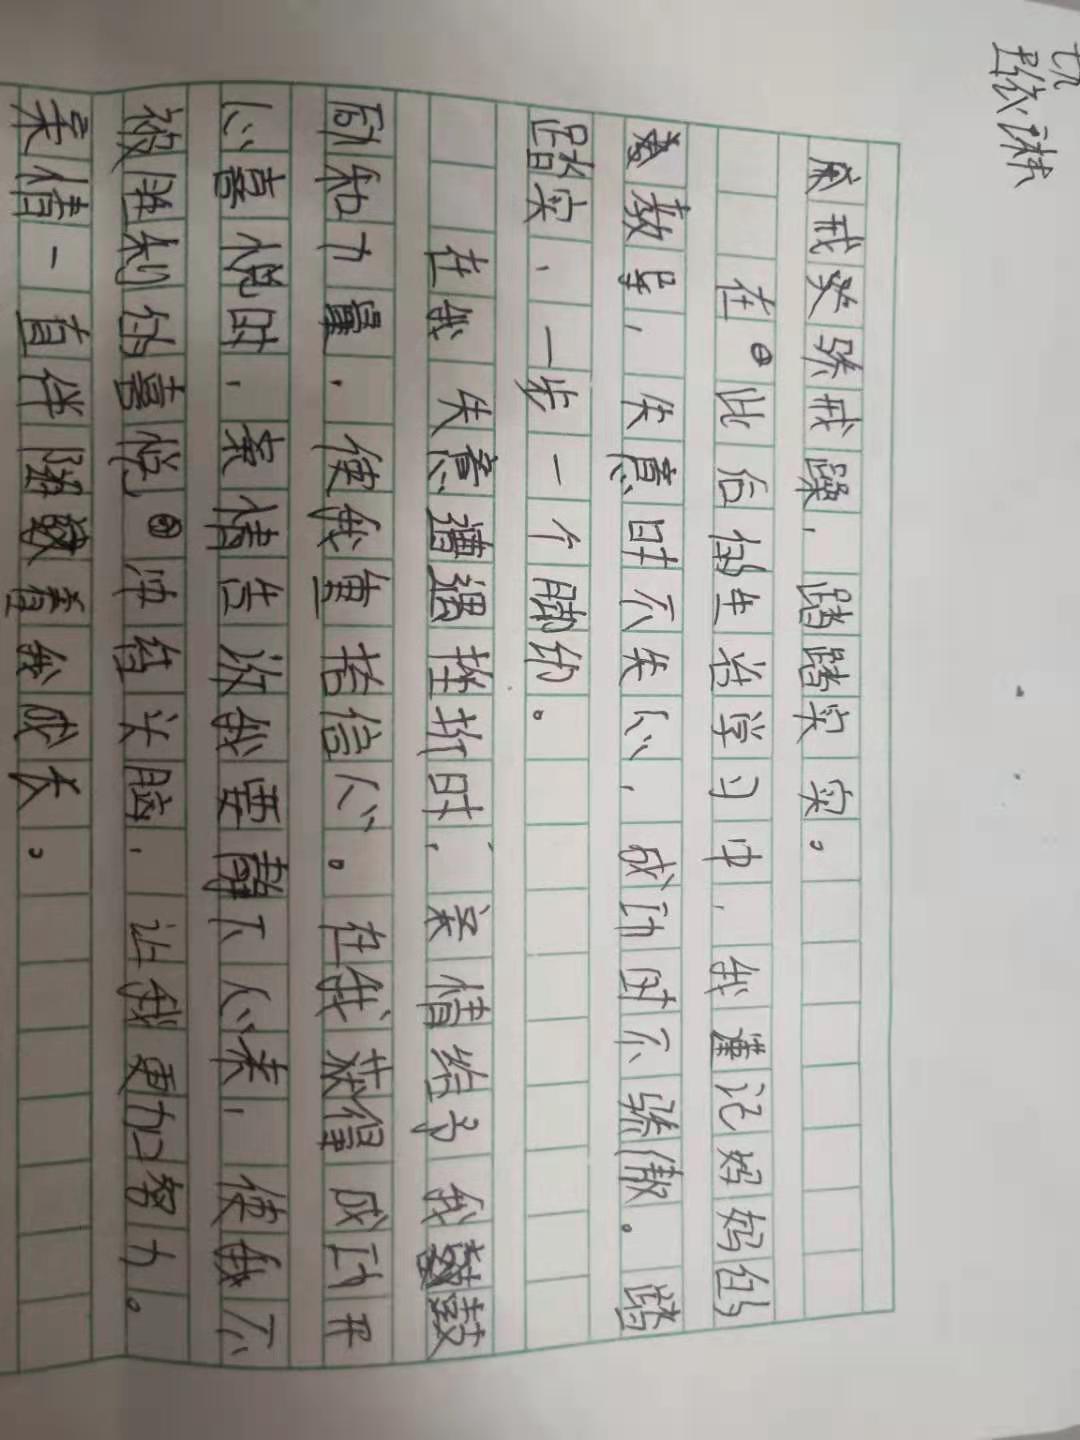 戒骄戒躁，踏踏实实。
在此后的生活学习中，我谨记妈妈的
教导，失意时不失心，成功时不骄傲。踏
踏实，一步一个脚印。
在我失意遭遇挫折时，亲情给予我鼓
励和力量，使我重拾信心。在我获得成功开
心喜悦时，亲情告诉我要静下心来，使我不
被胜利的喜悦冲昏头脑，让我更加努力。
亲情一直伴随着我成长。